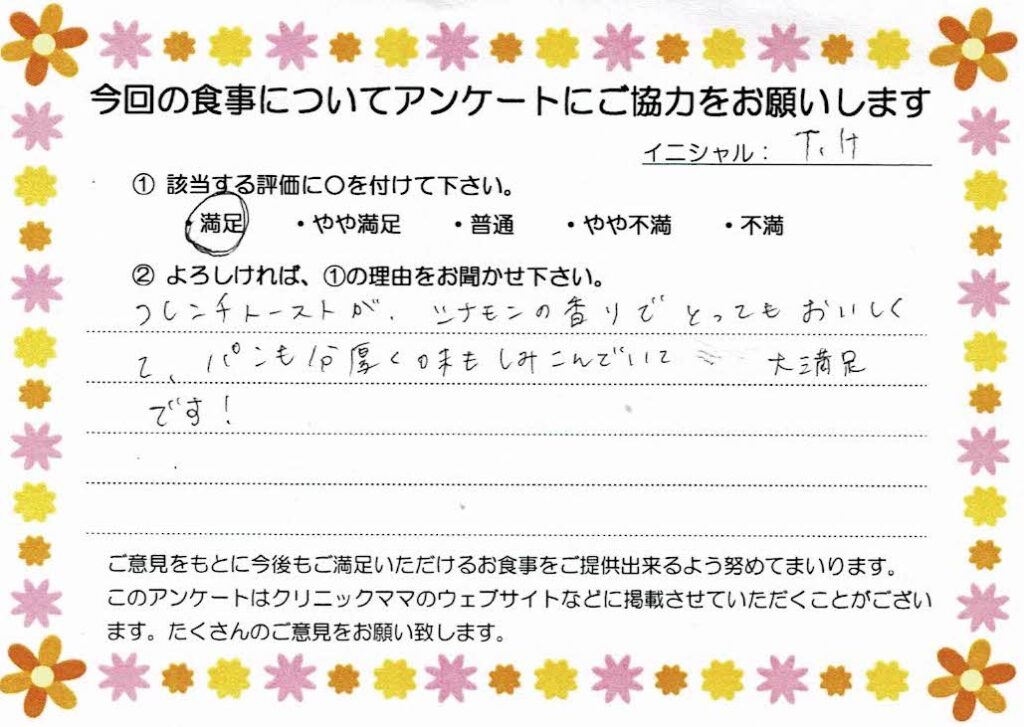 今回の食事についてアンケートにご協力をお願いします
イニシャル： T.H
① 該当する評価に○を付けて下さい。
・満足 ・やや満足 ・普通 ・やや不満 ・不満
② よろしければ、①の理由をお聞かせ下さい。
フレンチトーストが、シナモンの香りでとってもおいしく
て、パンも分厚く味もしみこんでいて 大満足
です！
ご意見をもとに今後もご満足いただけるお食事をご提供出来るよう努めてまいります。
このアンケートはクリニックママのウェブサイトなどに掲載させていただくことがござい
ます。たくさんのご意見をお願い致します。